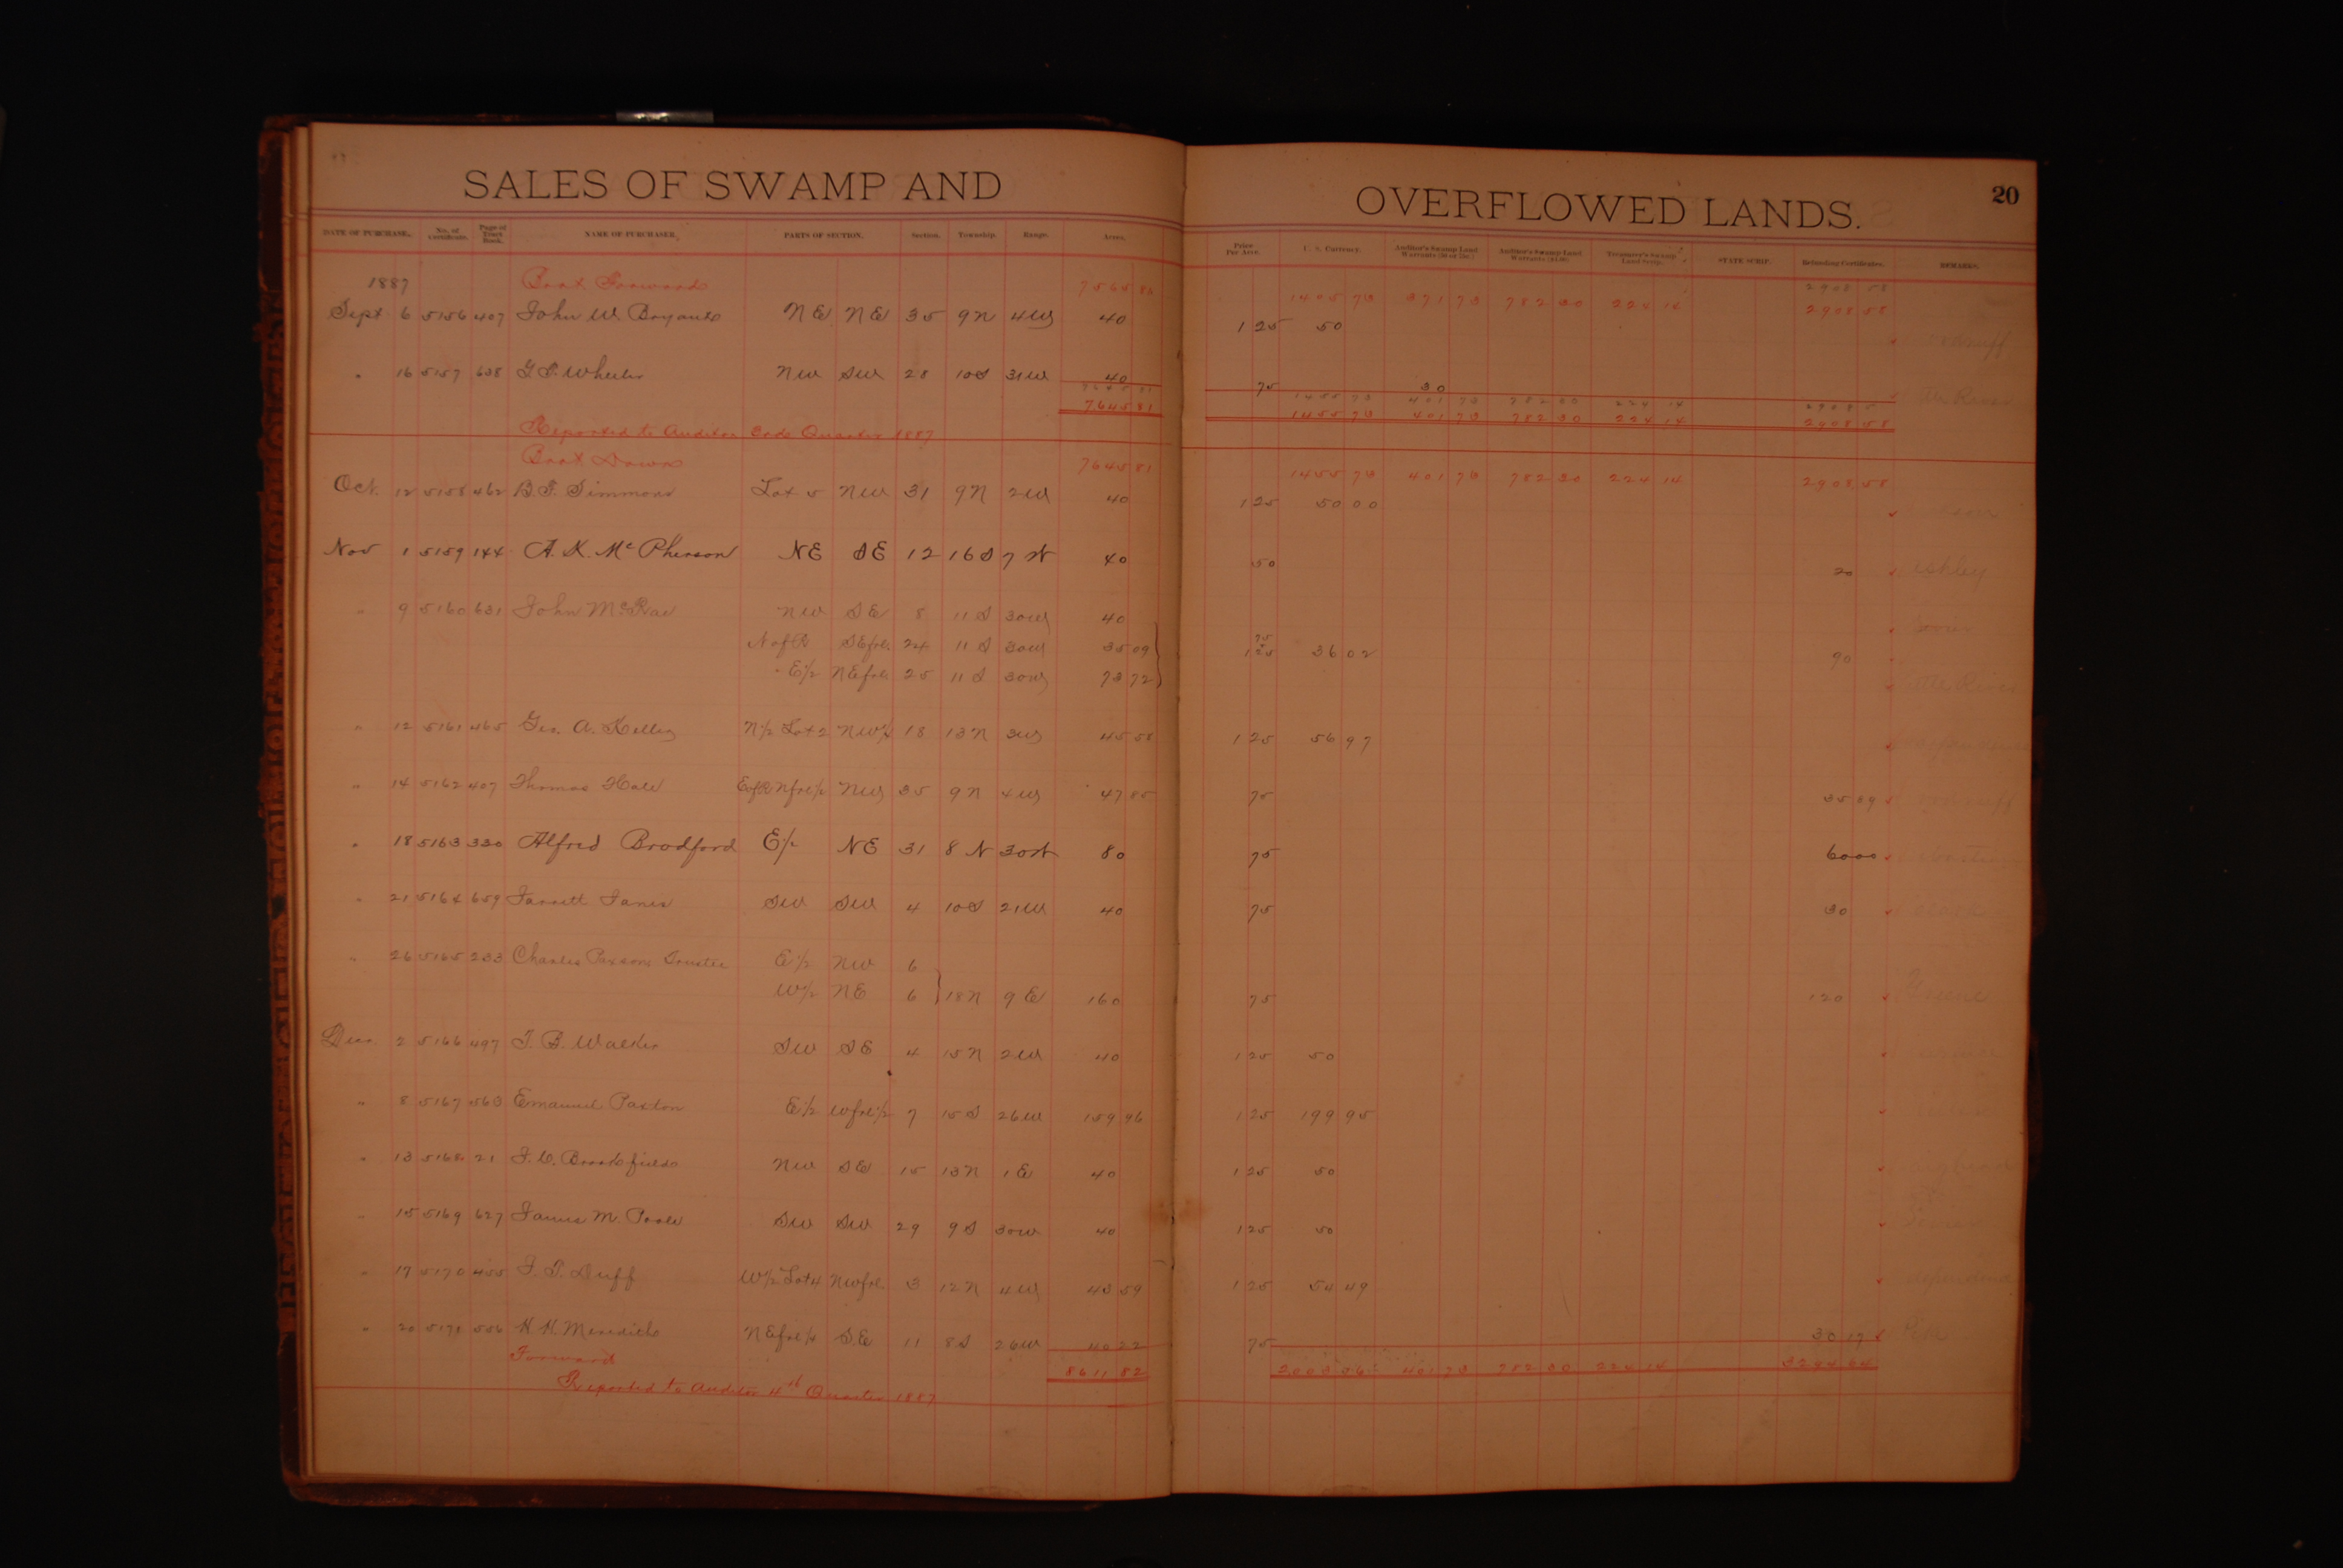 SALES OF SWAMP AND OVERFLOWED LANDS. 20
DATE OF PURCHASE. No. of Certificate. Page of Tract Book. NAME OF PURCHASER. PARTS OF SECTION. Section. Township. Range. Acres. Price Per Acre. U. S. Currency. Auditor's Swamp Land Warrants Auditor's Swamp Land Warrants Treasurer's Swamp Land Scrip. STATE SCRIP. Refunding Certificates. REMARKS.
2908 58
1887 Brot Forward 7565 81 1405 73 371 73 782 30 224 14 2908 58
Sept 6 5156 407 John W. Bryant NE NE 35 9N 4W 40 1 25 50
" 16 5157 638 Wheeler NW SW 28 10S 31W 40 75 30
7645 81 1455 73 401 73 782 30 224 14 2908 58
7645 81 1455 73 401 73 782 30 224 14 2908 58
Reported to Auditor 3rd Quarter 1887
Brot Down 7645 81 1455 73 401 73 782 30 224 14 2908 58
Oct. 12 5158 462 B. F. Simmons Lot 5 NW 31 9N 2W 40 1 25 50 00
Nov 1 5159 144 A. K. McPherson NE SE 12 16S 7W 40 50 20 Ashley
" 9 5160 631 John McRae NW SE 8 11S 30W 40
N of R SE frl. 24 11S 30W 35 09 75 + 1 25 36 02 90
E 1/2 NE frl. 25 11S 30W 73 72 Little River
" 12 5161 465 Geo. A. Kelley N 1/2 Lot 2 NW 1/4 18 13N 3W 45 58 1 25 56 97
" 14 5162 407 Thomas Hale E of R N frl 1/2 NW 35 9N 4W 47 85 75 35 89
" 18 5163 330 Alfred Bradford E 1/2 NE 31 8N 30W 80 75 60 00
" 21 5164 659 Jarrett Janes SW SW 4 10S 21W 40 75 30
" 26 5165 233 Charles Paxson, Trustee E 1/2 NW 6
W 1/2 NE 6 18N 9E 160 75 120 Greene
Dec. 2 5166 497 Walker SW SE 4 15N 2W 40 1 25 50
" 8 5167 563 Emanuel Paxton E 1/2 W frl 1/2 7 15S 26W 159 96 1 25 199 95
" 13 5168 21 Brookfield NW SE 15 13N 1E 40 1 25 50
" 15 5169 627 James M. Poole SW SW 29 9S 30W 40 1 25 50
" 17 5170 455 Duff W 1/2 Lot 4 NW frl. 3 12N 4W 43 59 1 25 54 49
" 20 5171 556 H. H. Meredith NE frl 1/4 SE 11 8S 26W 40 22 75 30 17 Pike
Forward 8611 82 2003 06 401 73 782 30 224 14 3294 64
Reported to Auditor 4th Quarter 1887